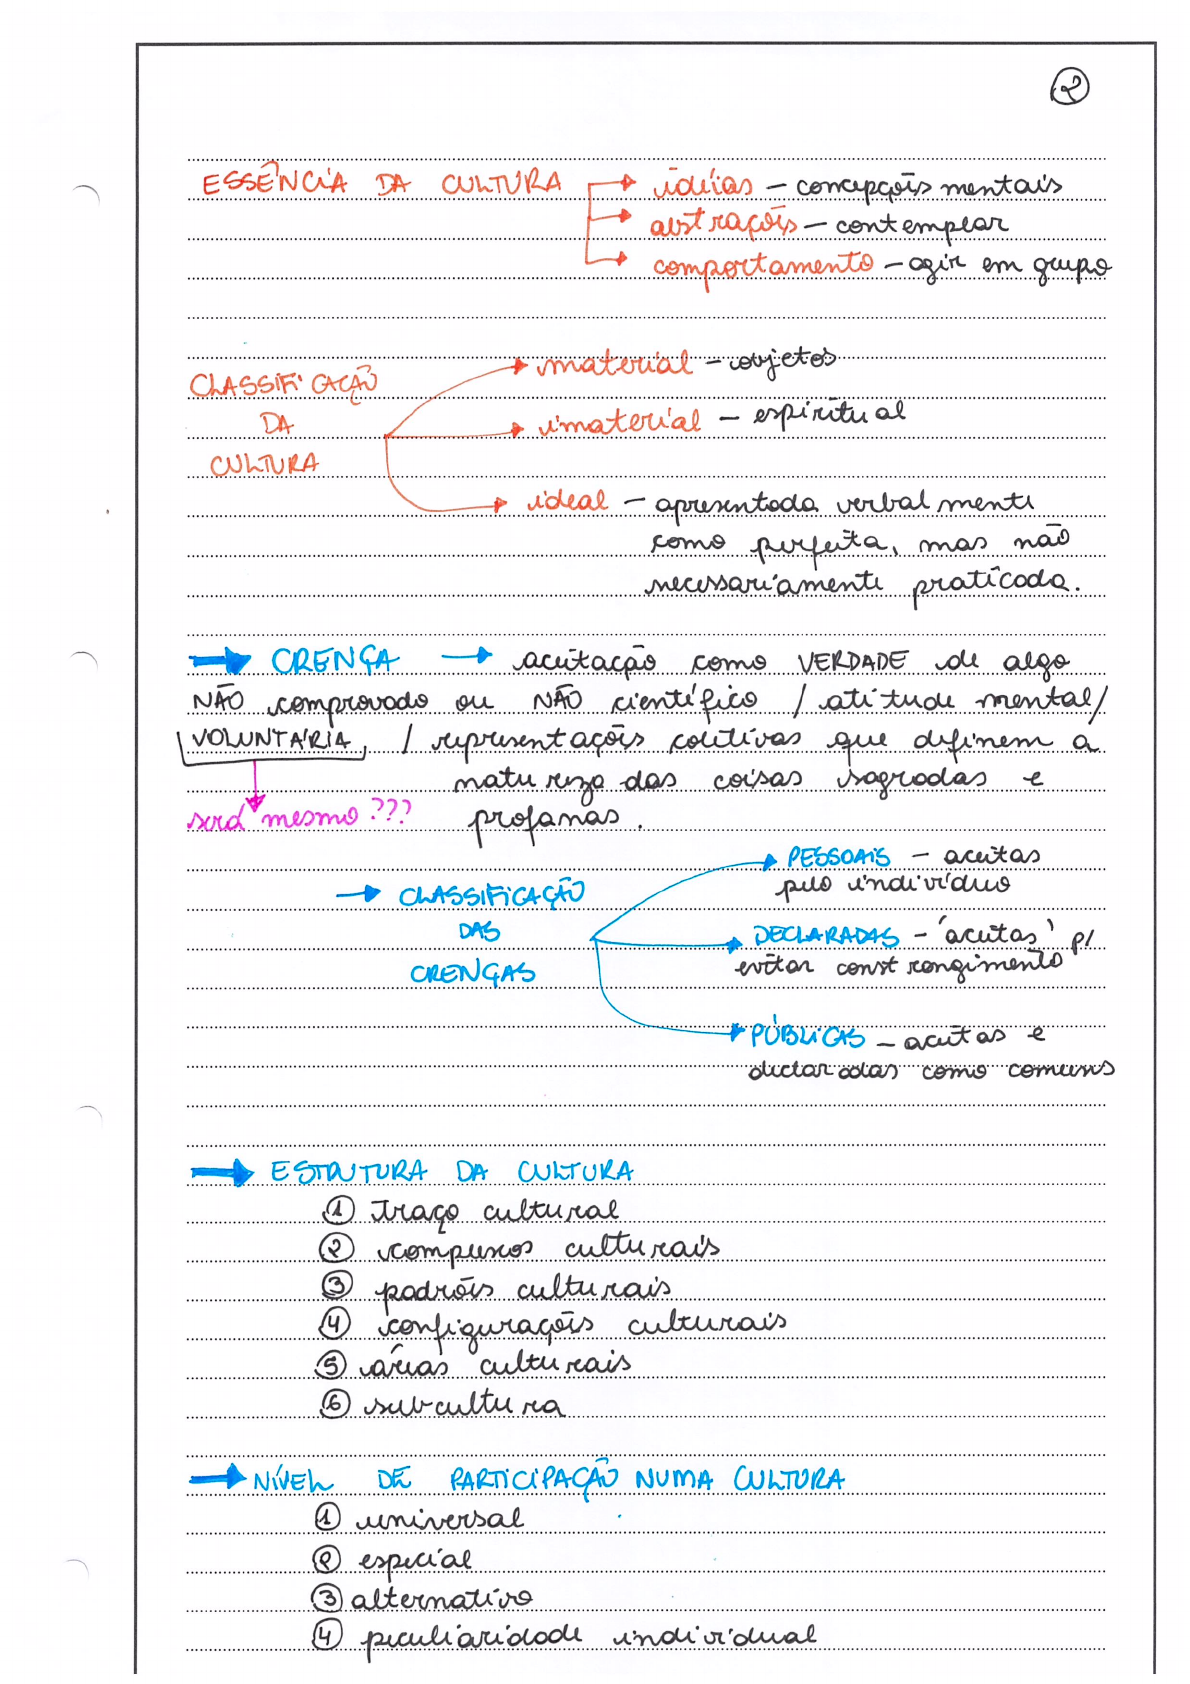 2
ESSÊNCIA DA CULTURA → idéias – concepções mentais
→ abstrações – contemplar
→ comportamento – agir em grupo
→ material – objetos
CLASSIFICAÇÃO
DA → imaterial – espiritual
CULTURA
→ ideal – apresentada verbalmente
como perfeita, mas não
necessariamente praticada.
→ CRENÇA → aceitação como VERDADE de algo
NÃO comprovado ou NÃO científico / atitude mental/
VOLUNTÁRIA, / representações coletivas que definem a
natureza das coisas sagradas e
será mesmo ??? profanas.
→ PESSOAIS – aceitas
→ CLASSIFICAÇÃO pelo indivíduo
DAS → DECLARADAS – 'aceitas' p/
CRENÇAS evitar constrangimento
→ PÚBLICAS – aceitas e
declaradas como comuns
→ ESTRUTURA DA CULTURA
1 traço cultural
2 complexos culturais
3 padrões culturais
4 configurações culturais
5 áreas culturais
6 subcultura
→ NÍVEL DE PARTICIPAÇÃO NUMA CULTURA
1 universal
2 especial
3 alternativo
4 peculiaridade individual